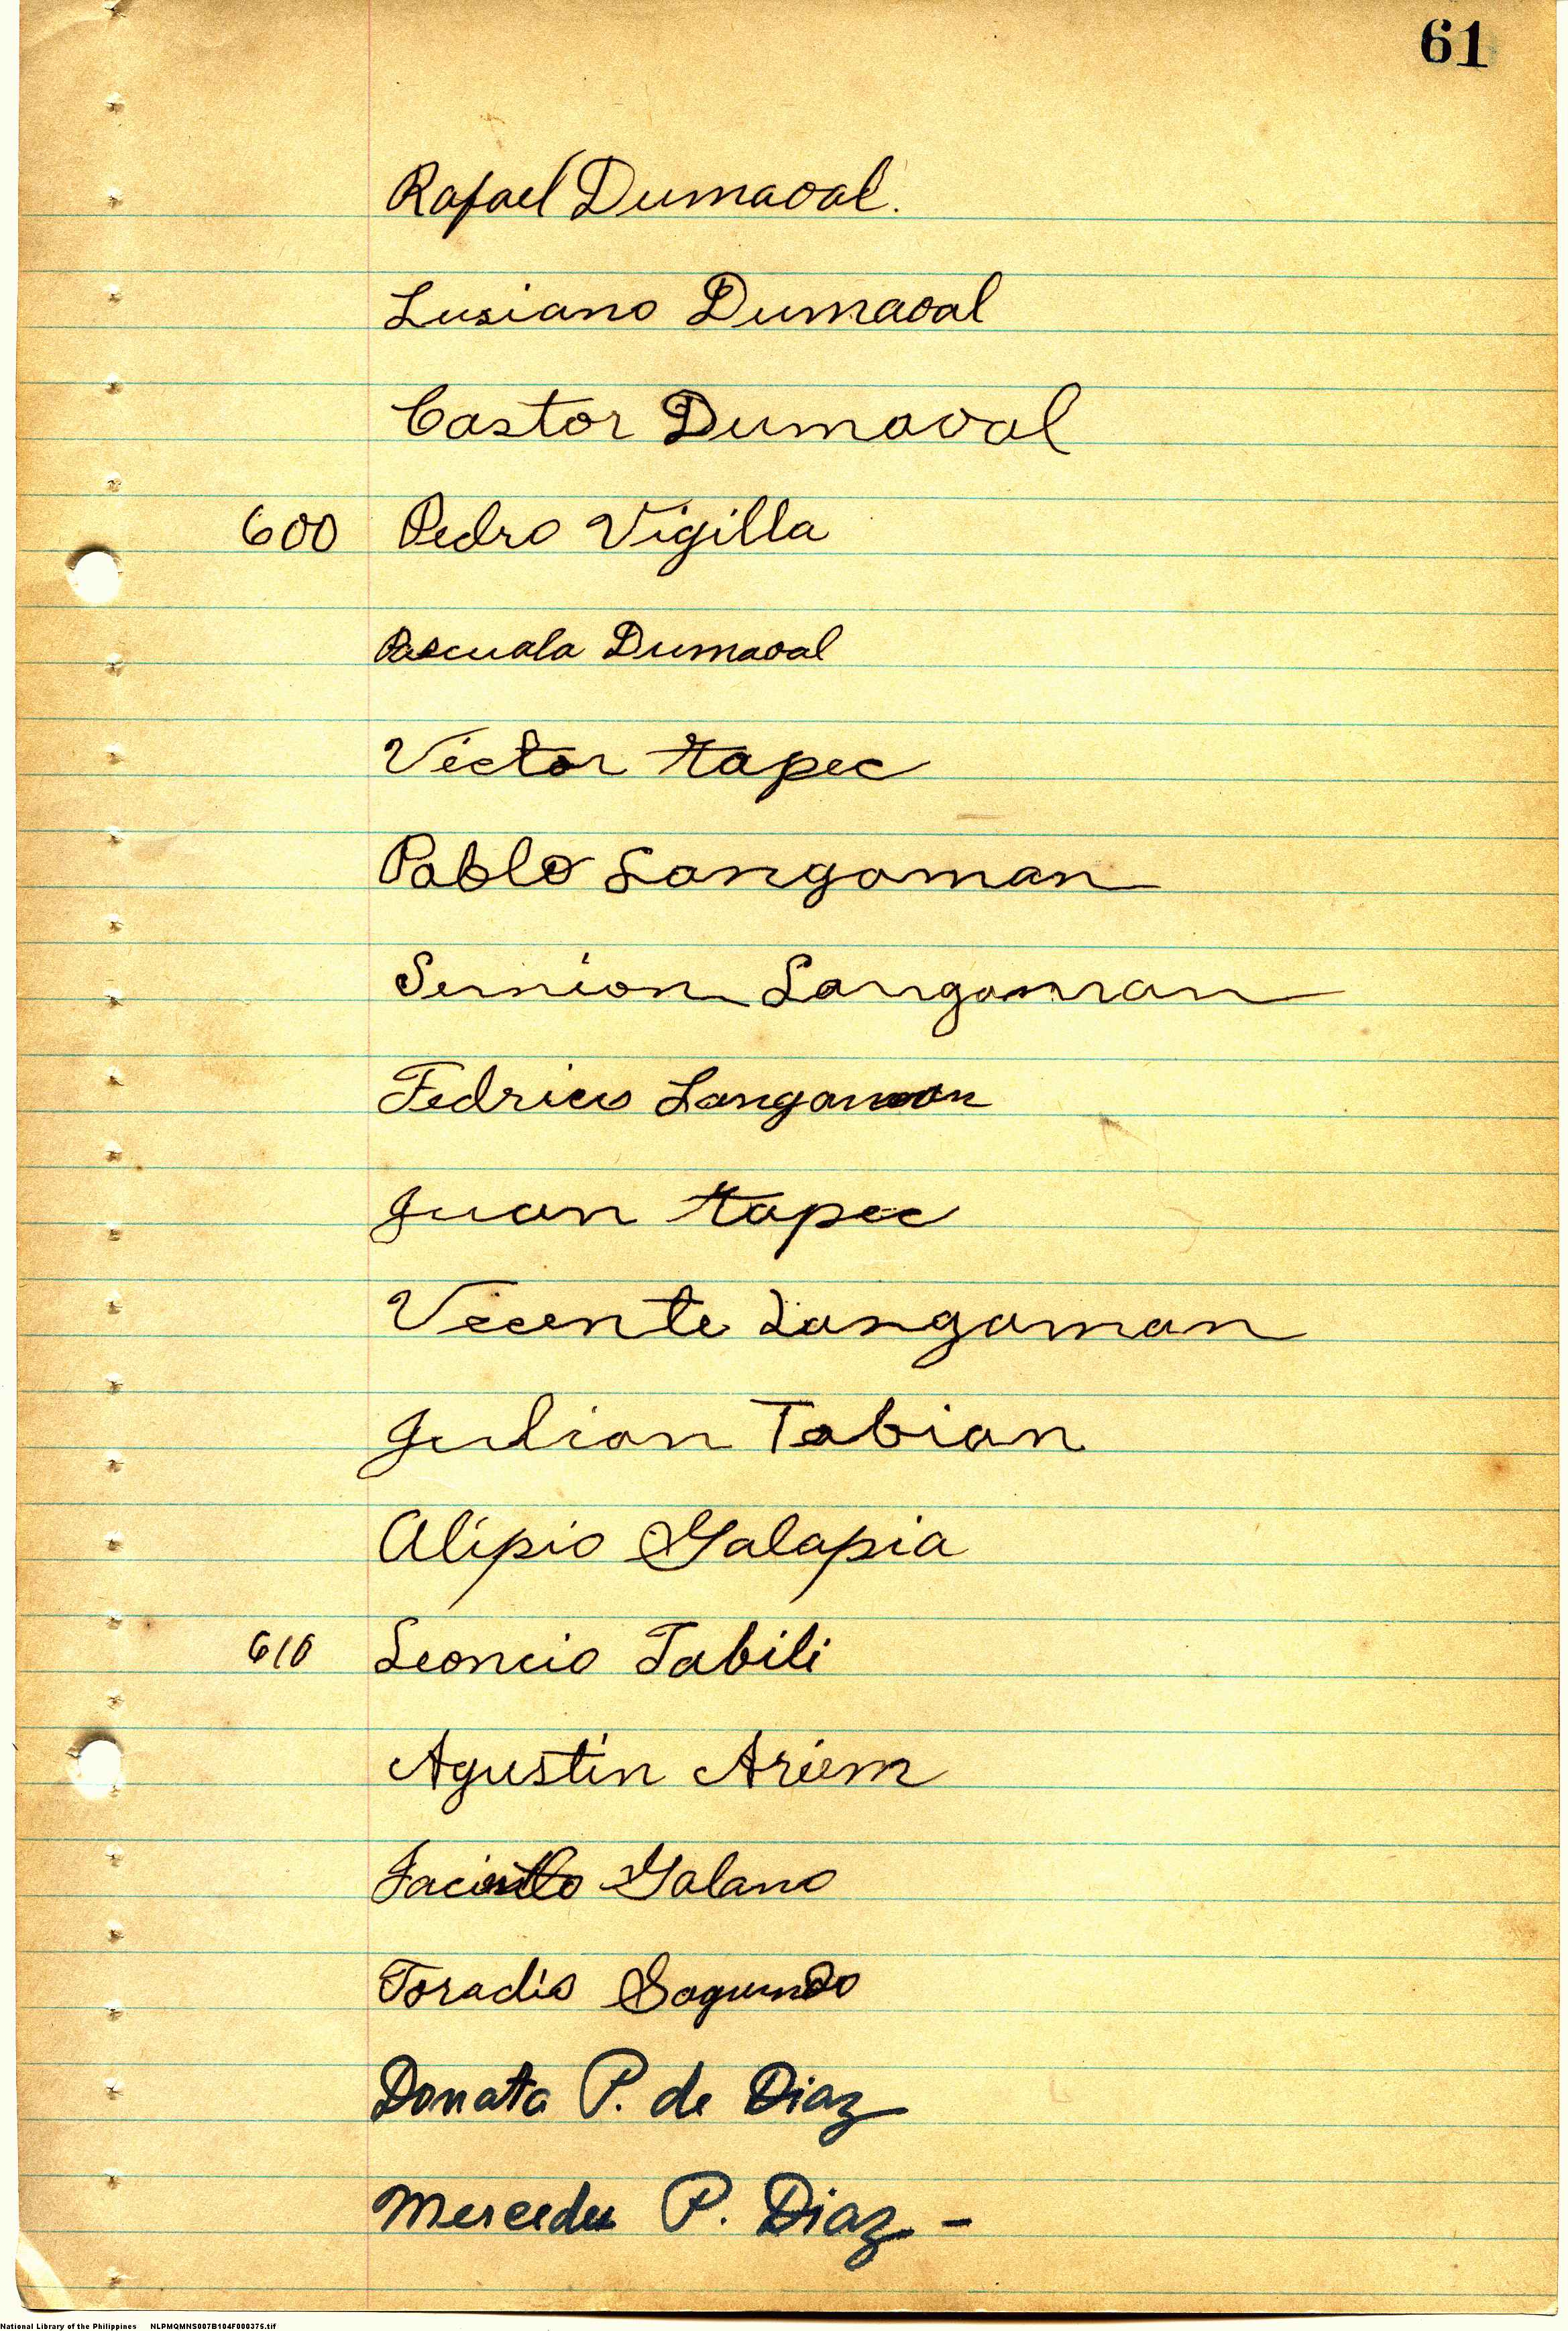 61
Rafael Dumaoal.
Lusiano Dumaoal
Castor Dumaoal
600 Pedro Vigilla
Pascuala Dumaoal
Victor Tapec
Pablo Langaman
Simion Langaman
Fedrico Langaman
Juan Tapec
Vecente Langaman
Julian Tabian
Alipio Galapia
610 Leoncio Tabili
Agustin Ariem
Jacinto Galano
Toradio Sagundo
Donata P. de Diaz
Mercedes P. Diaz -
National Library of the Philippines NLPMQMNS007B104F000375.tif